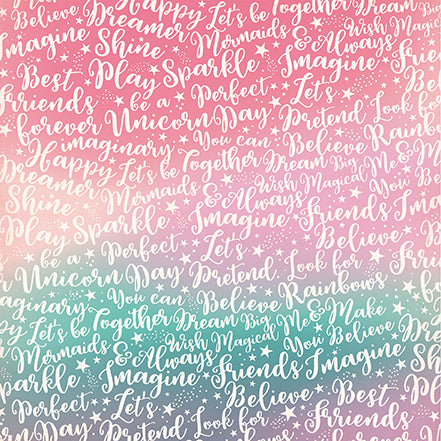 Happy Let's be Together Dream Big Me
Dreamer Mermaids Wish Magical
Imagine Shine & Always
Play Sparkle Imagine Friends
Best Perfect Let's
Friends be a Pretend Look for
forever Unicorn Day Believe Rainbows
imaginary You can
Happy Let's be Together Dream Big Me &
Dreamer Mermaids Wish Magical You Believe
Shine & Always
Play Sparkle Imagine Friends Imagine
be a Perfect Let's Believe
Unicorn Day Pretend Look for Friends
imaginary You can Believe Rainbows
Let's be Together Dream Big Me & Make
Mermaids & Always Wish Magical You Believe
Sparkle Imagine Friends Imagine
Perfect Let's Believe Best
Day Pretend Look for Friends